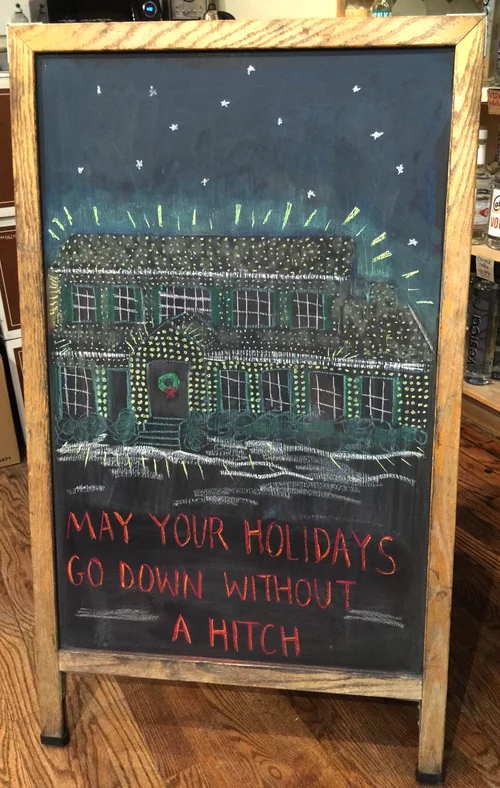 MAY YOUR HOLIDAYS
GO DOWN WITHOUT
A HITCH